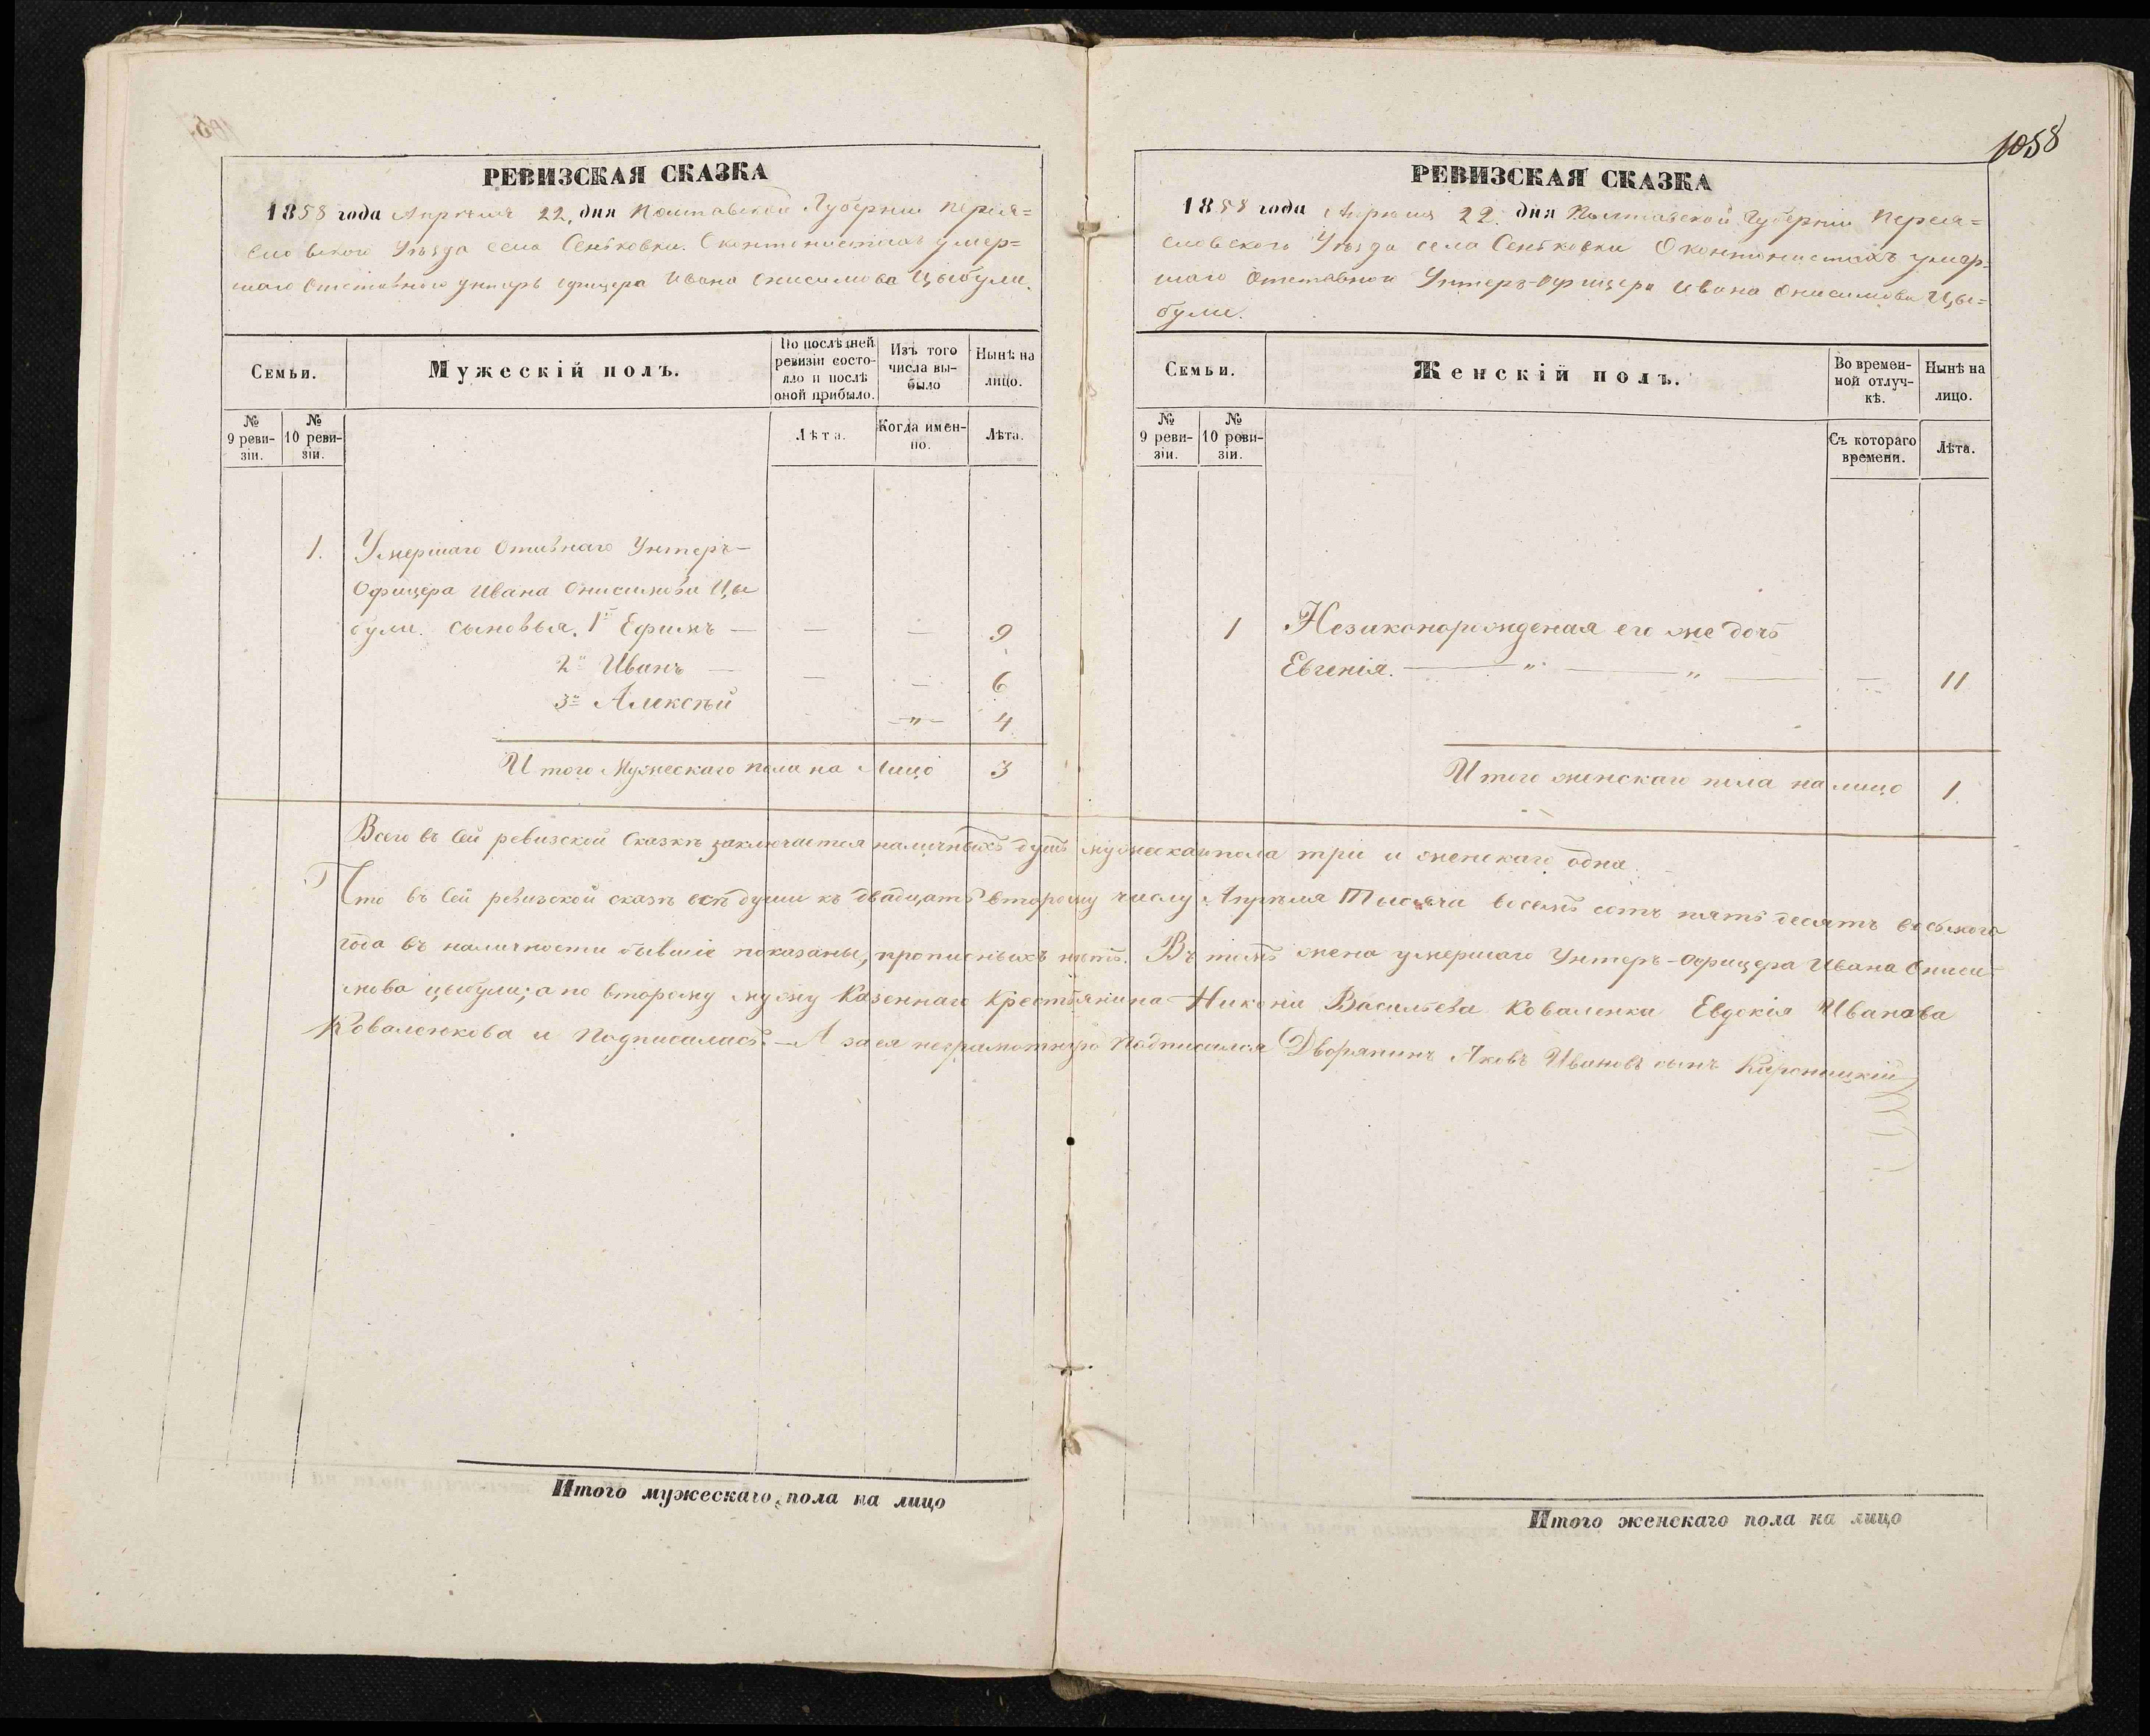 1058
РЕВИЗСКАЯ СКАЗКА
1858 года Апрѣля 22, дня Полтавской Губерніи Переяс=
ловского Уѣзда села Сеньковки. О контонистахъ умер=
шаго Отставного унтеръ офицера Ивана Онисимова Цыбули.
Семьи.
Мужескій полъ.
По послѣдней ревизіи состо-
яло и послѣ оной прибыло.
Изъ того числа вы-
было
Нынѣ на лицо.
№ 9 реви-
зіи.
№ 10 реви-
зіи.
Лѣта.
Когда имен-
но.
Лѣта.
1. Умершаго Отивнаго Унтеръ-
Офицера Ивана Онисимова Цы
були. сыновья. 1й Ефимъ — — — 9
2й Иванъ — — — 6
3й Алексѣй — „ — 4
Итого Мужескаго пола на Лицо 3
РЕВИЗСКАЯ СКАЗКА
1858 года Апрѣля 22. дня Полтавской Губерніи Переяс=
ловского Уѣзда села Сеньковки О контонистахъ умер=
шаго Отставного Унтеръ-офицера Ивана Онисимова Цы=
були.
Семьи.
Женскій полъ.
Во времен-
ной отлуч-
кѣ.
Нынѣ на лицо.
№ 9 реви-
зіи.
№ 10 реви-
зіи.
Съ котораго времени.
Лѣта.
1 Незаконорожденая его же дочь
Евгенія. — „ — „ — — 11
Итого женскаго пола налицо 1.
Всего въ сей ревизской Сказкѣ заключается наличныхъ душъ мужескаго пола три и женскаго одна.
Что въ сей ревизской сказкѣ всѣ души къ двадцать второму числу Апрѣля Тысяча восемь сотъ пять десятъ восьмого
года въ наличности бывшіе показаны, прописныхъ нѣтъ. Въ томъ жена умершаго Унтеръ-Офицера Ивана Ониси-
мова цыбули; а по второму мужу Казеннаго Крестьянина Никона Васильева Коваленка Евдокія Иванова
Коваленкова и Подписалась. — А за ея неграмотную Подписался Дворянинъ Яковъ Ивановъ сынъ
Итого мужескаго пола на лицо
Итого женскаго пола на лицо